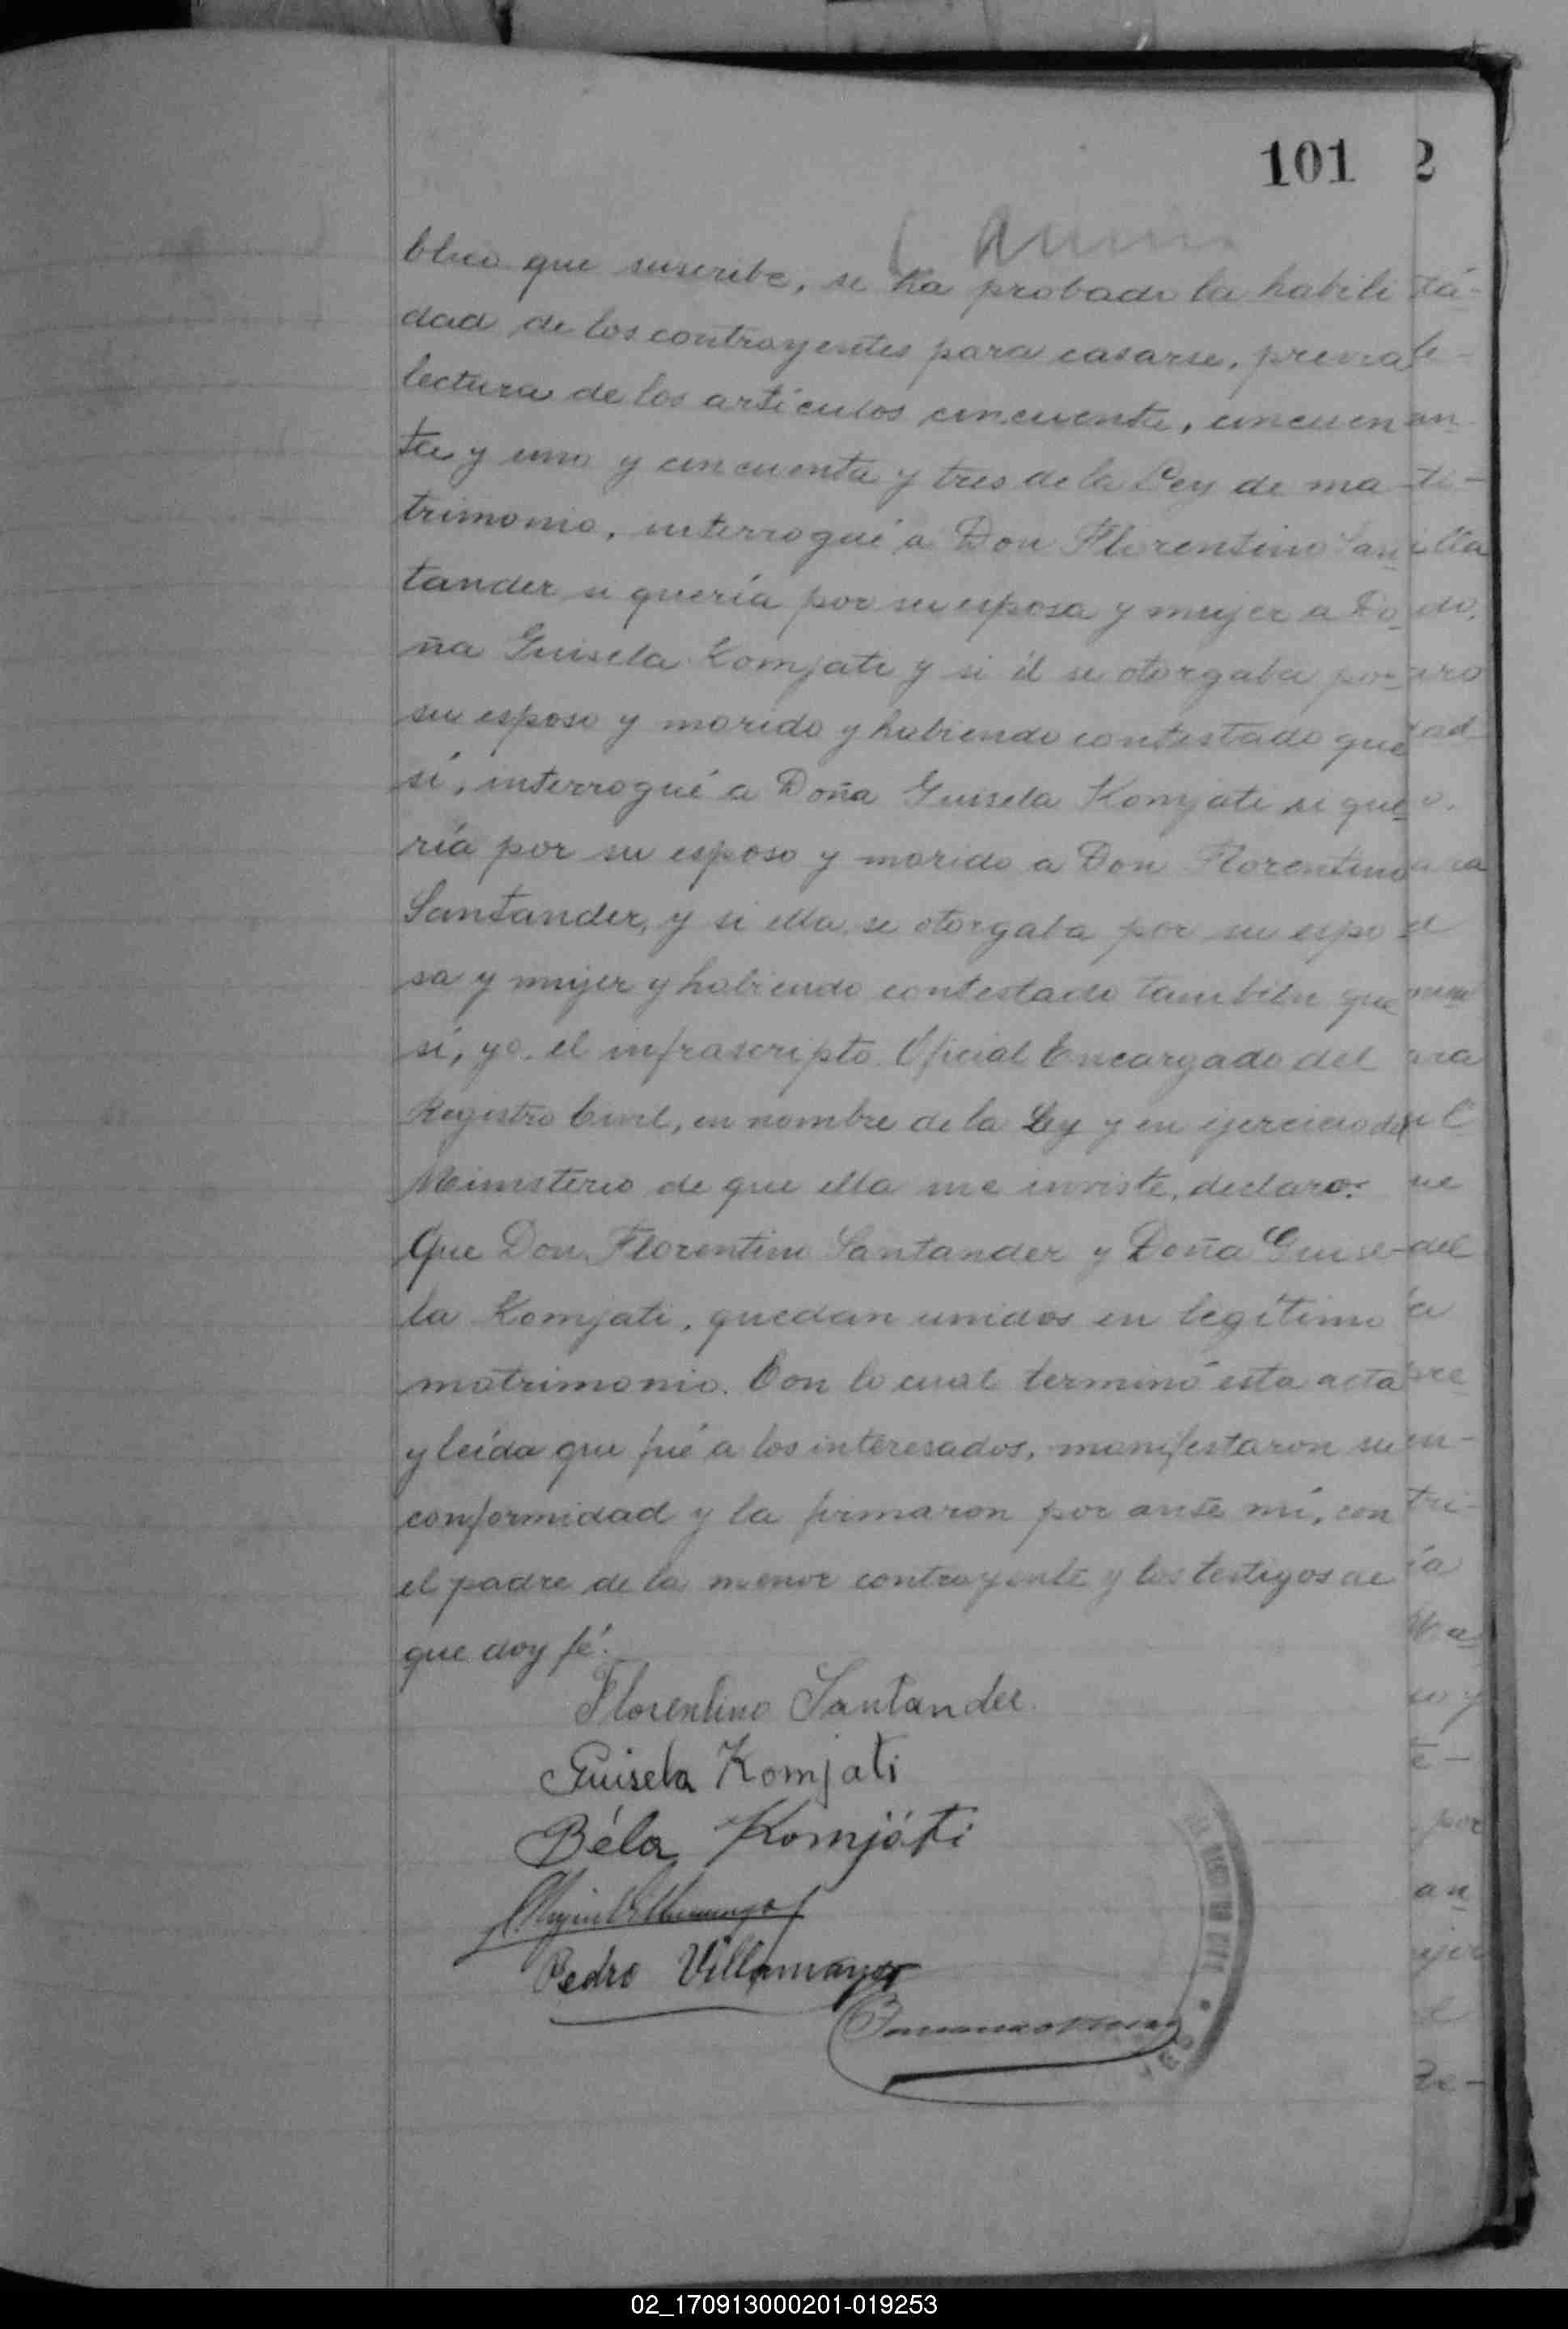 101 2
blico que suscribe, se ha probado la habili
dad de los contrayentes para casarse, previa
lectura de los artículos cincuenta, cincuen
ta y uno y cincuenta y tres de la Ley de ma
trimonio, interrogué a Don Florentino San
tander si quería por su esposa y mujer a Do
ña Guisela Komjati y si él se otorgaba por
su esposo y marido y habiendo contestado que
sí, interrogué a Doña Guisela Komjati si que
ría por su esposo y marido a Don Florentino
Santander, y si ella se otorgaba por su espo
sa y mujer y habiendo contestado también que
sí, yo, el infrascripto Oficial Encargado del
Registro Civil, en nombre de la Ley y en ejercicio del
Ministerio de que ella me inviste, declaro:
Que Don Florentino Santander y Doña Guise-
la Komjati, quedan unidos en legítimo
matrimonio. Con lo cual terminó esta acta
y leída que fué a los interesados, manifestaron su
conformidad y la firmaron por ante mí, con
el padre de la menor contrayente y los testigos de
que doy fé.
Florentino Santander.
Guisela Komjati
Béla Komjáti
Pedro Villamayor
02_170913000201-019253